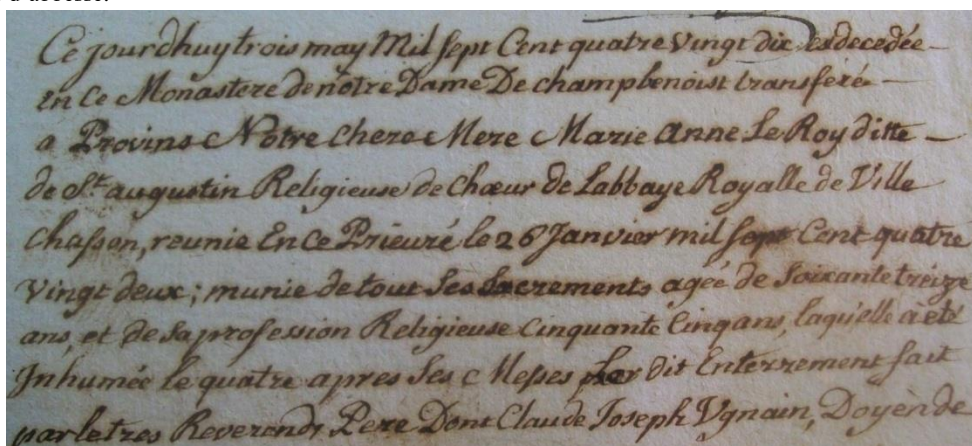 Ce jourdhuy trois may Mil sept Cent quatre vingt dix est decedée
En Ce Monastere de nôtre Dame De champbenoist transferé
a Provins Notre Chere Mere Marie Anne Le Roy ditte
de St. augustin Religieuse de Chœur de Labbaye Royalle de Ville
Chasson, reunie En Ce Prieuré le 26 Janvier mil sept Cent quatre
vingt deux; munie de tout Ses Sacrements agée de Soixante treize
ans, et de Sa profession Religieuse Cinquante Cinq ans, laquelle à été
Inhumée le quatre apres Ses Messes dit Enterrement fait
par le tres Reverend Pere Dont Claude Joseph Vgnain, Doyen de